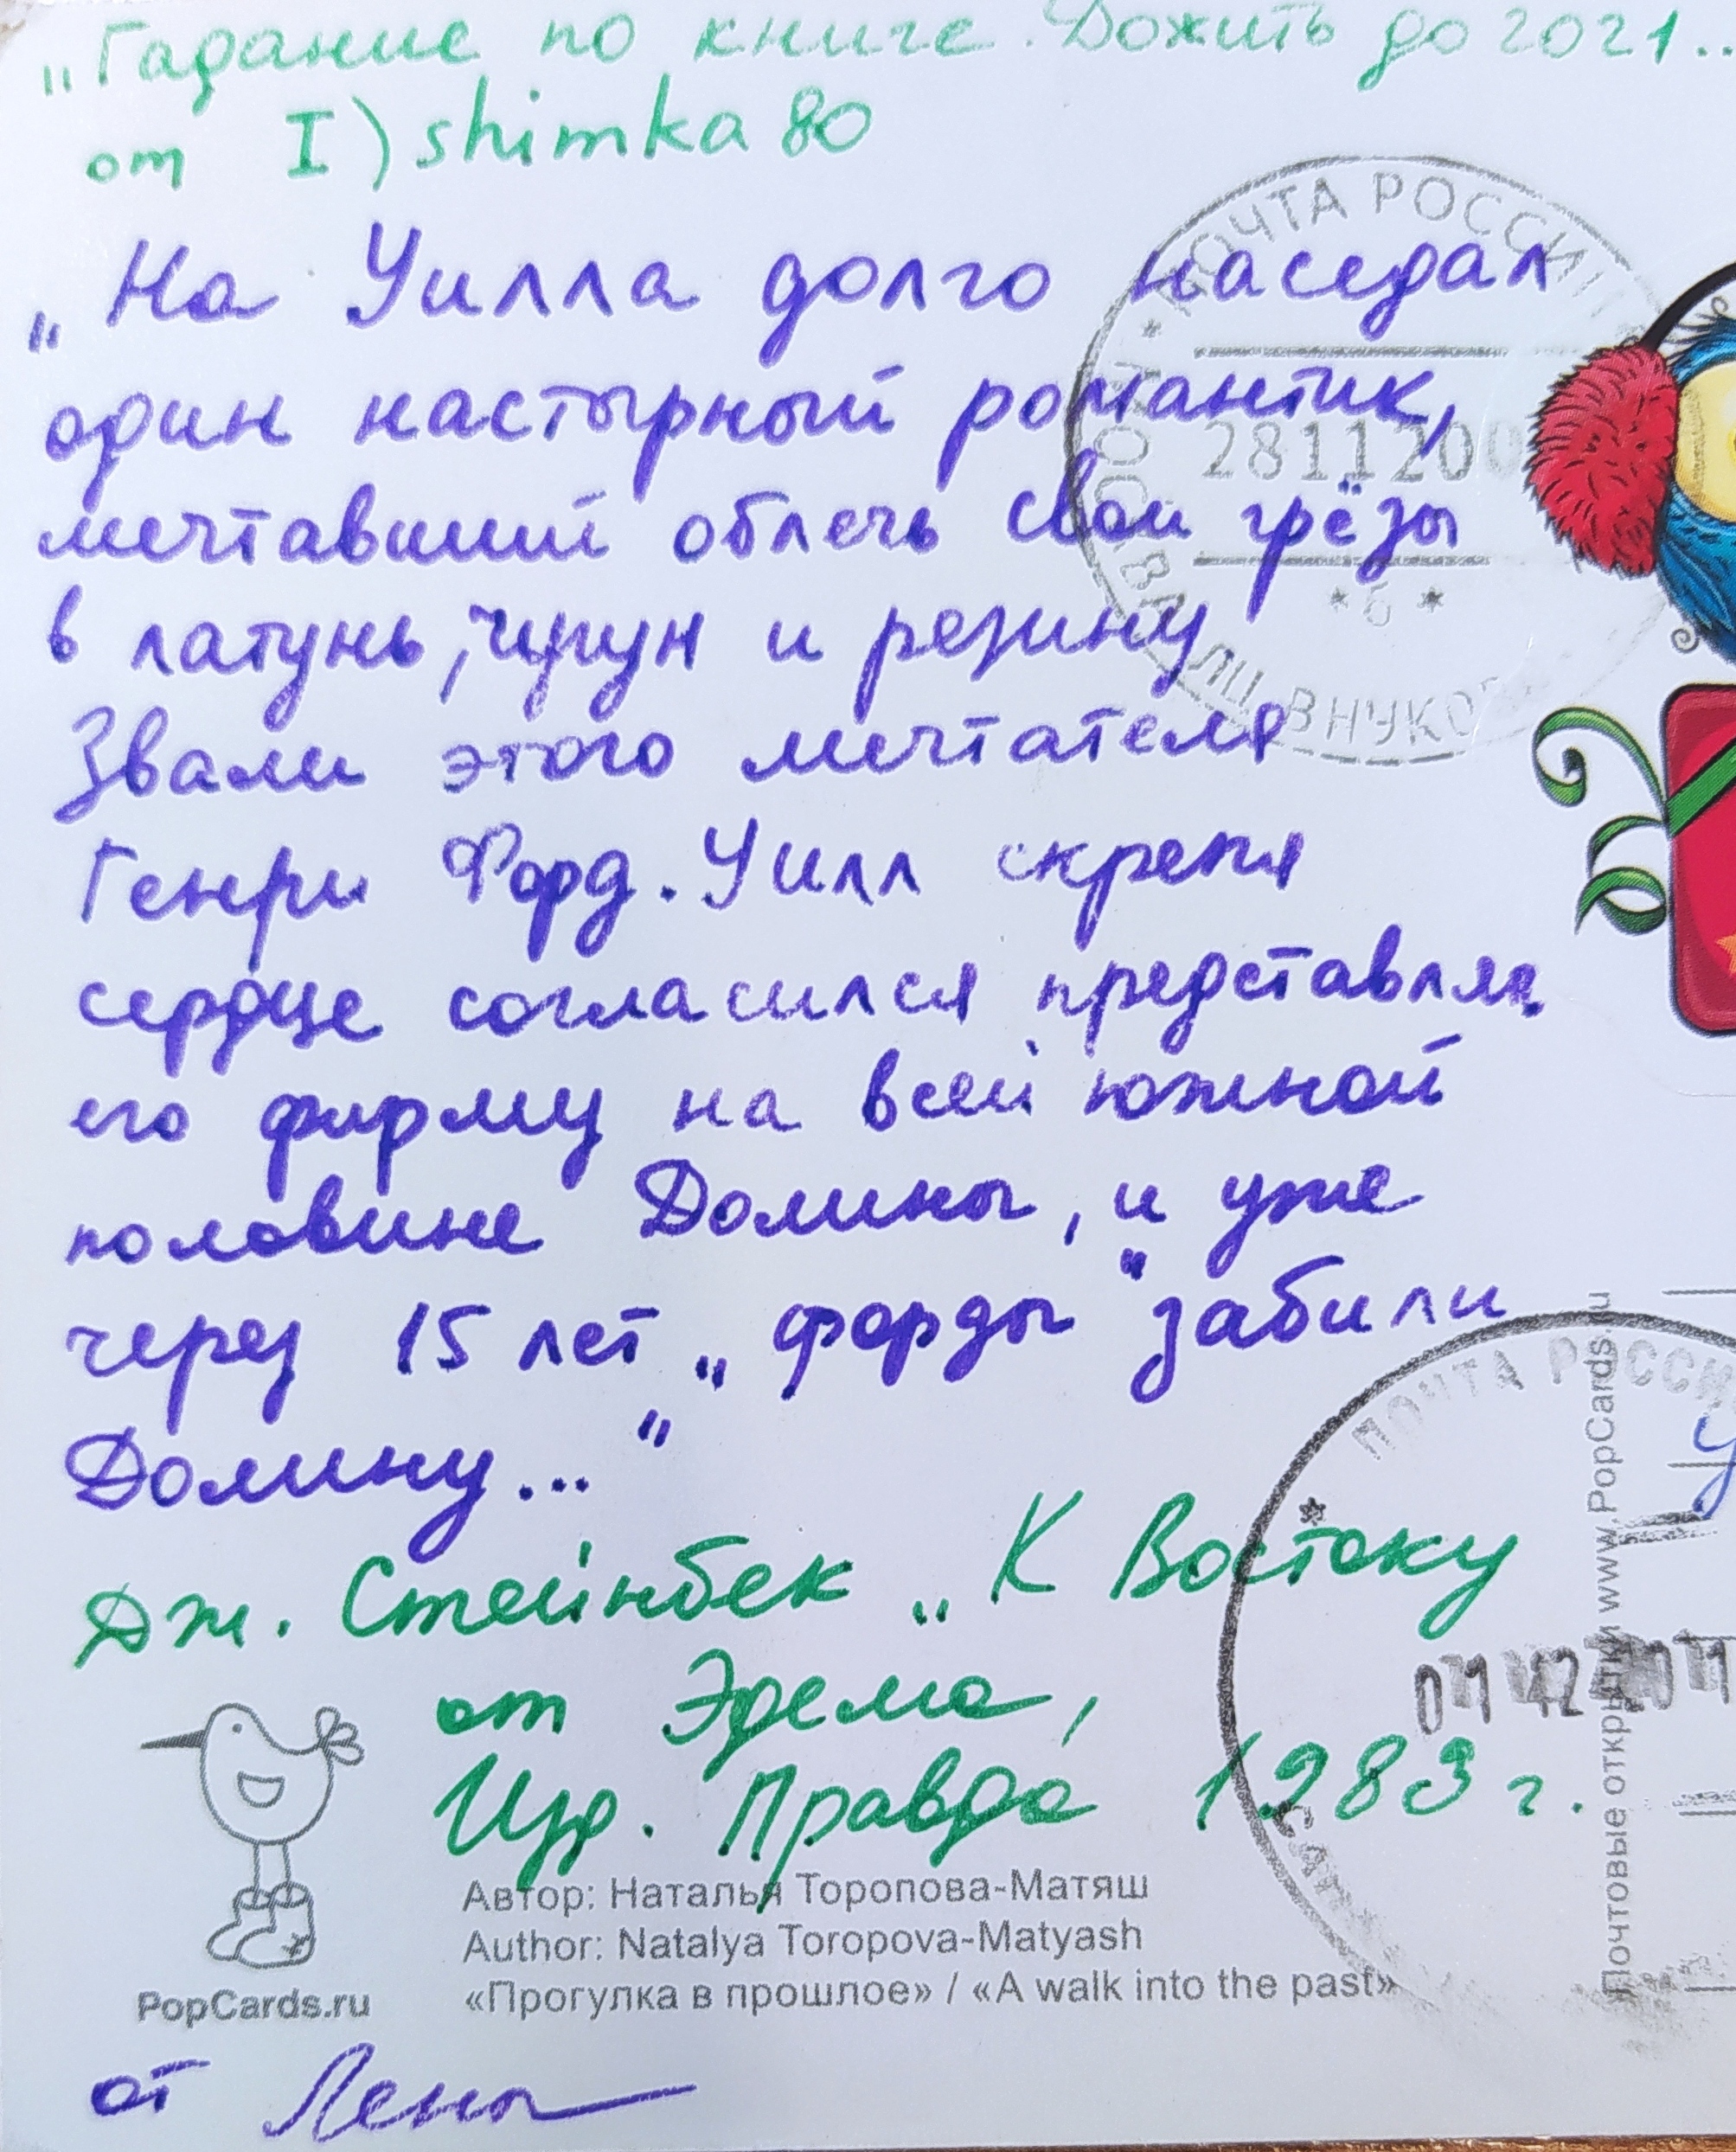 „Гадание по книге. Дожить до 2021...
от I) shimka 80
„На Уилла долго наседал
один настырный романтик,
мечтавший облечь свои грёзы
в латунь, чугун и резину
Звали этого мечтателя
Генри Форд. Уилл скрепя
сердце согласился представлять
его фирму на всей южной
половине Долины, и уже
через 15 лет „форды" забили
Долину..."
Дж. Стейнбек „К Востоку
от Эдема,
Изд. Правда 1989 г.
Автор: Наталья Торопова-Матяш
Author: Natalya Toropova-Matyash
«Прогулка в прошлое» / «A walk into the past»
PopCards.ru
от Лены
Почтовые открытки www.PopCards.ru
ПОЧТА РОССИИ
281120
ВНУКО
ПОЧТА РОССИИ